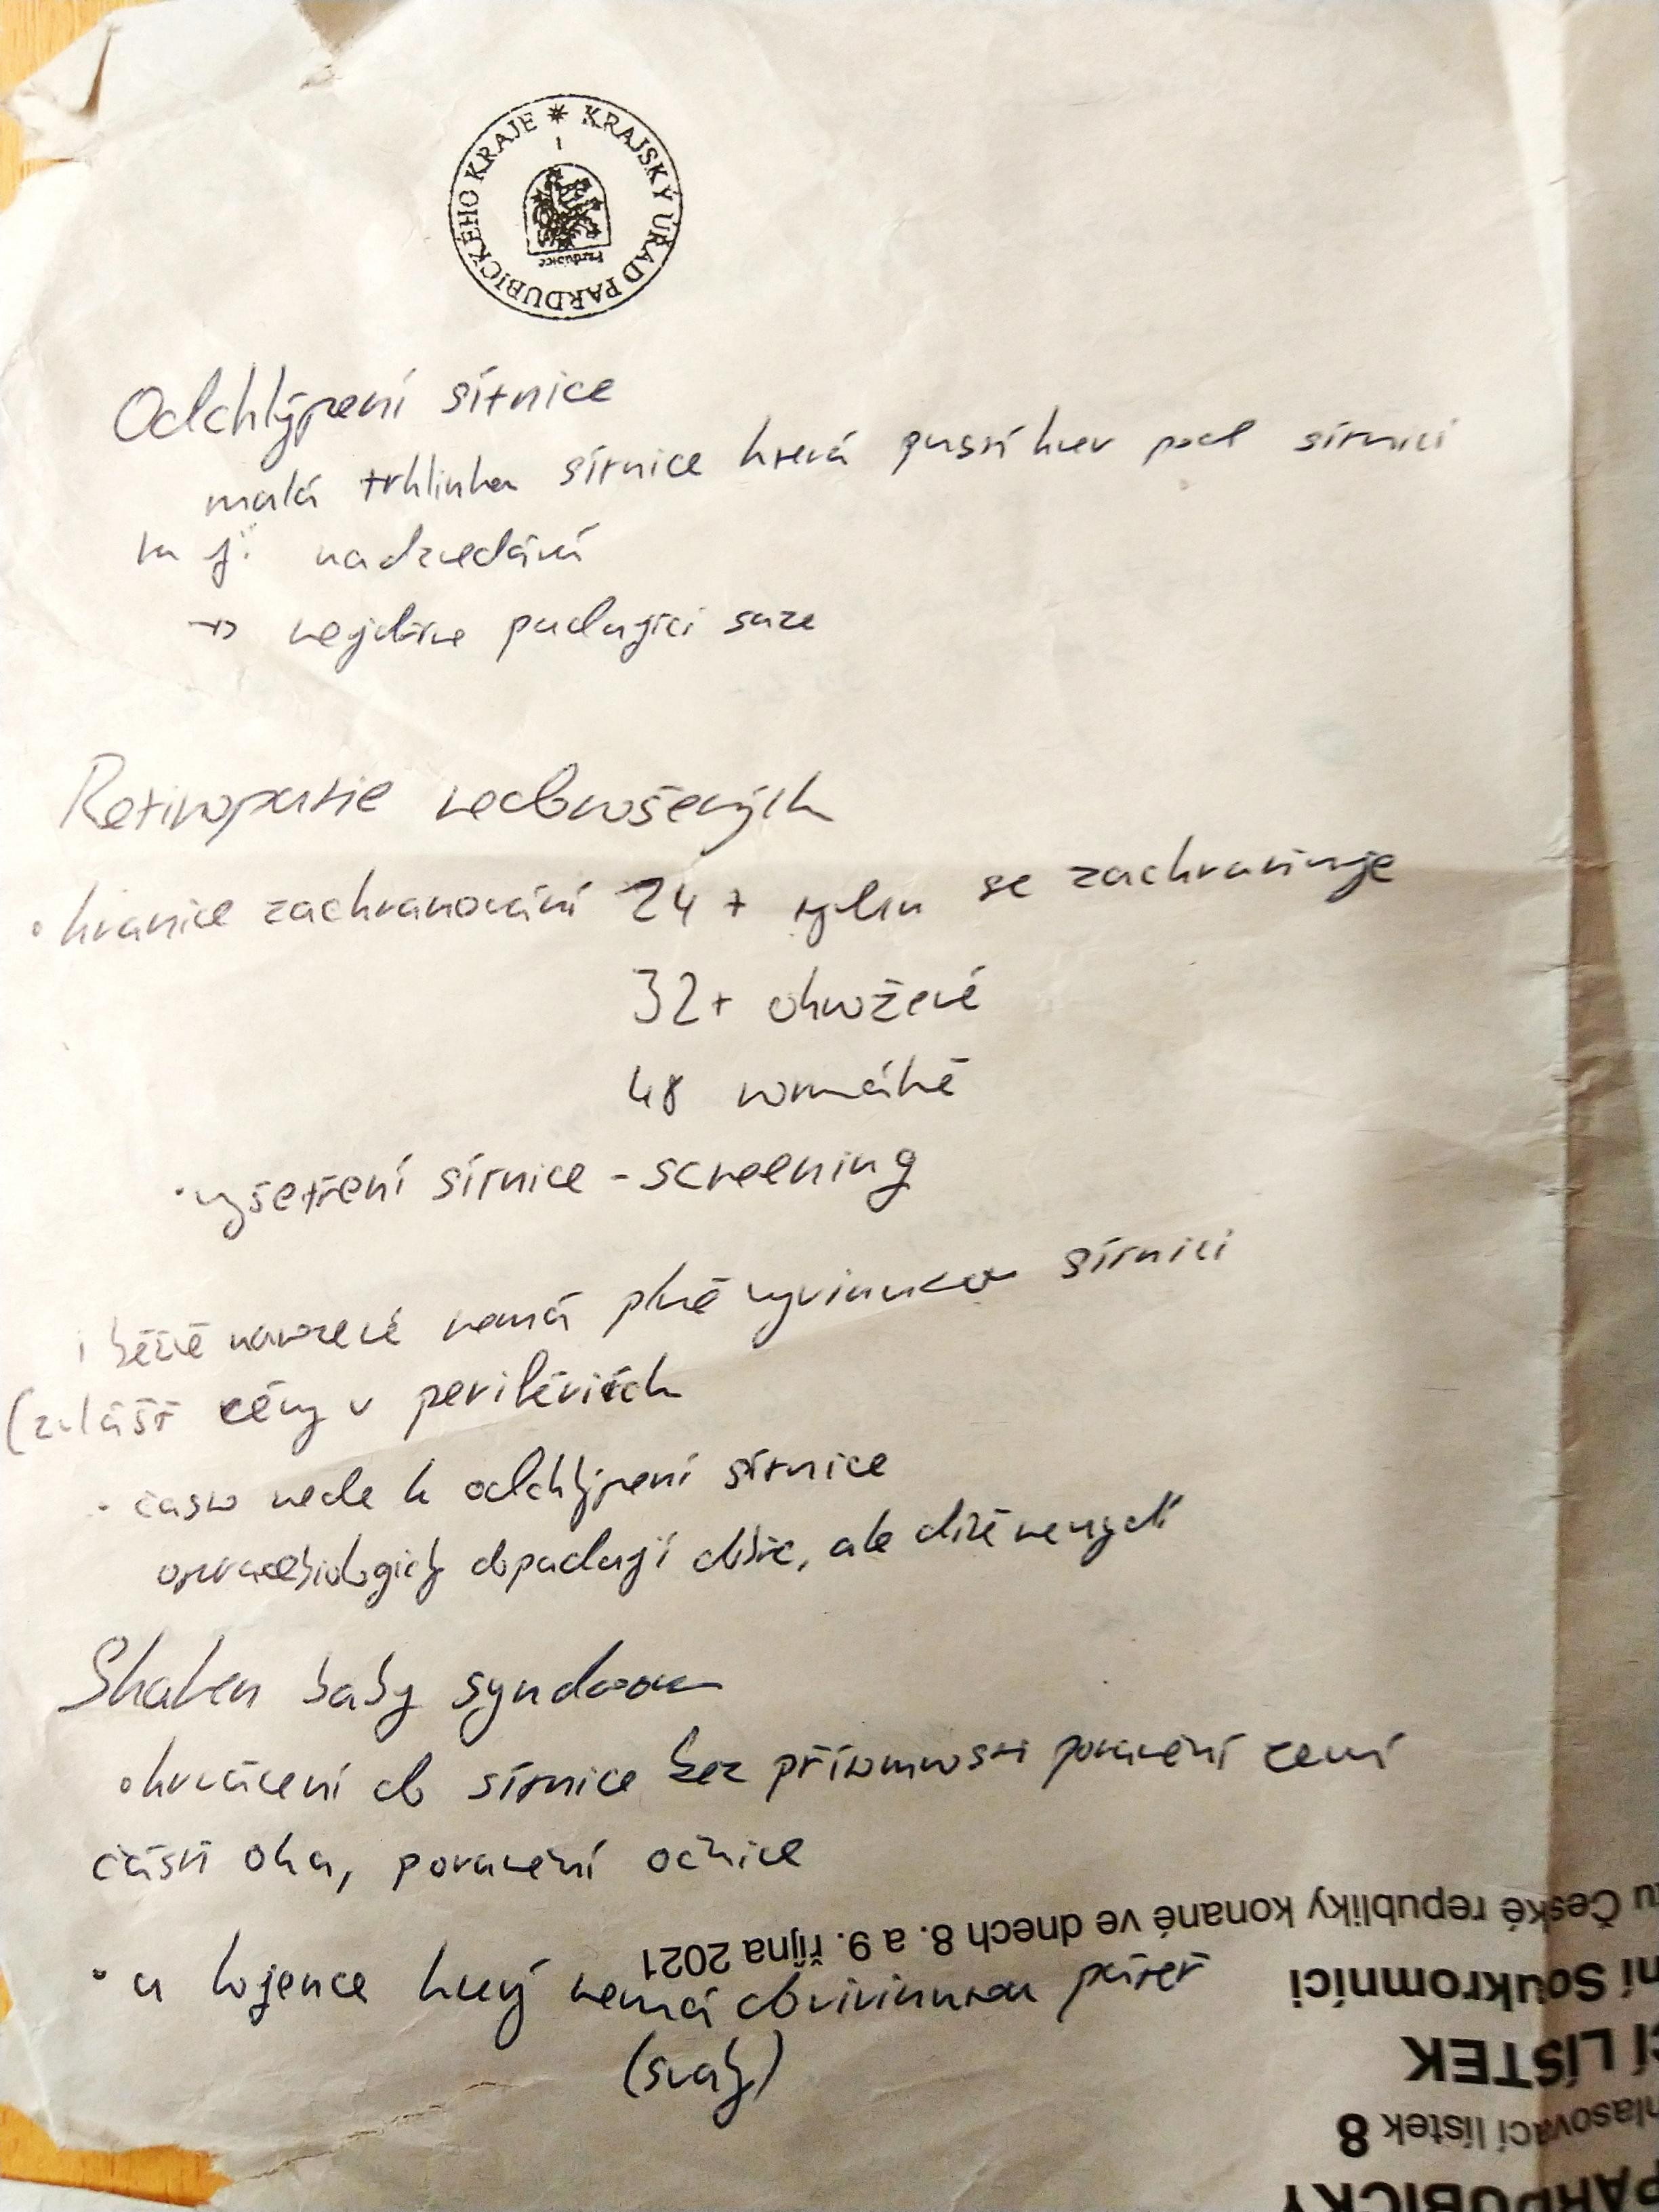 KRAJSKÝ ÚŘAD PARDUBICKÉHO KRAJE *
1
Pardubice
Odchlýpení sítnice
malá trhlinka sítnice která pustí krev pod sítnici
ta jí nadzvedává
→ nejdříve padající saze
Retinopatie nedonošených
• hranice zachraňování 24+ týdnů se zachraňuje
32+ ohrožené
48 normálně
• vyšetření sítnice - screening
i běžně narozené nemá plně vyvinutou sítnici
(zvlášť cévy v periferiích
• často vede k odchlýpení sítnice
dopadají dobře, ale dítě nevidí
Shaken baby syndrom
• krvácení do sítnice bez přítomnosti poranění zevní
části oka, poranění očnice
• u kojence který nemá dovyvinutou páteř
(svaly)
u České republiky konané ve dnech 8. a 9. října 2021
ní Soukromníci
CÍ LÍSTEK
hlasovací lístek 8
PARDUBICKÝ